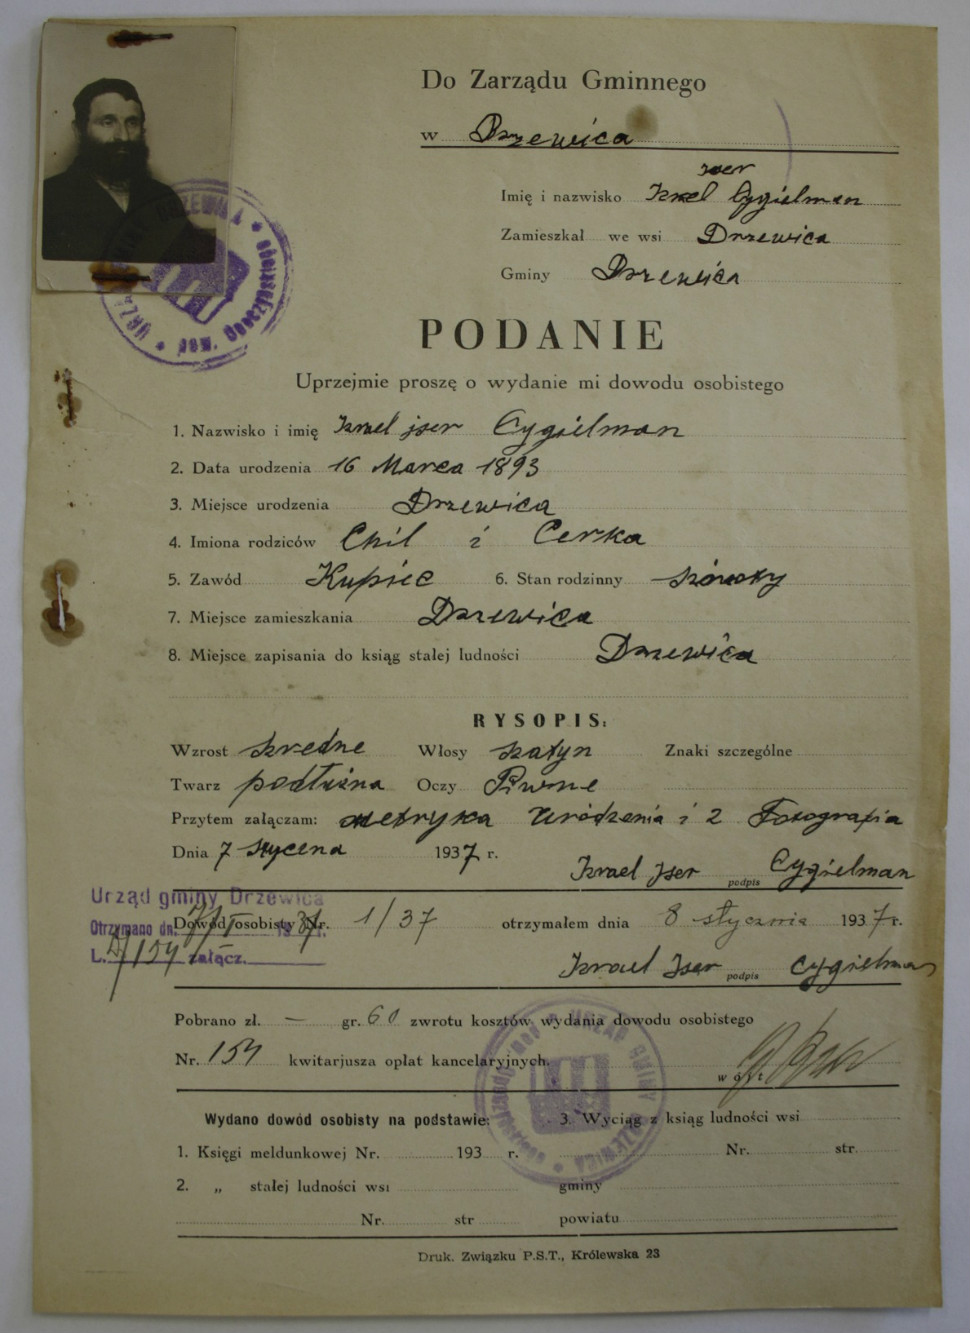 Do Zarządu Gminnego
w Drzewica
Iser
Imię i nazwisko Izrael Cygielman
Zamieszkał we wsi Drzewica
Gminy Drzewica
PODANIE
Uprzejmie proszę o wydanie mi dowodu osobistego
1. Nazwisko i imię Izrael jser Cygielman
2. Data urodzenia 16 Marca 1893
3. Miejsce urodzenia Drzewica
4. Imiona rodziców Chil i Cerka
5. Zawód Kupiec 6. Stan rodzinny
7. Miejsce zamieszkania Drzewica
8. Miejsce zapisania do ksiąg stałej ludności Drzewica
RYSOPIS:
Wzrost średne Włosy szatyn Znaki szczególne
Twarz podłużna Oczy Piwne
Przytem załączam: metryka urodzenia i 2 Fotografia
Dnia 7 stycena 1937 r.
Izrael Jser Cygielman
podpis
Urząd gminy Drzewica
Otrzymano dn. 7/I 1937 r.
L. D/154 załącz.
Dowód osobisty Nr. 1/37 otrzymałem dnia 8 stycznia 1937 r.
Izrael Jser Cygielman
podpis
Pobrano zł. — gr. 60 zwrotu kosztów wydania dowodu osobistego
Nr. 154 kwitarjusza opłat kancelaryjnych.
wójt
Wydano dowód osobisty na podstawie: 3. Wyciąg z ksiąg ludności wsi
1. Księgi meldunkowej Nr. 193 r. Nr. str.
2. „ stałej ludności wsi gminy
Nr. str powiatu
Druk. Związku P.S.T., Królewska 23